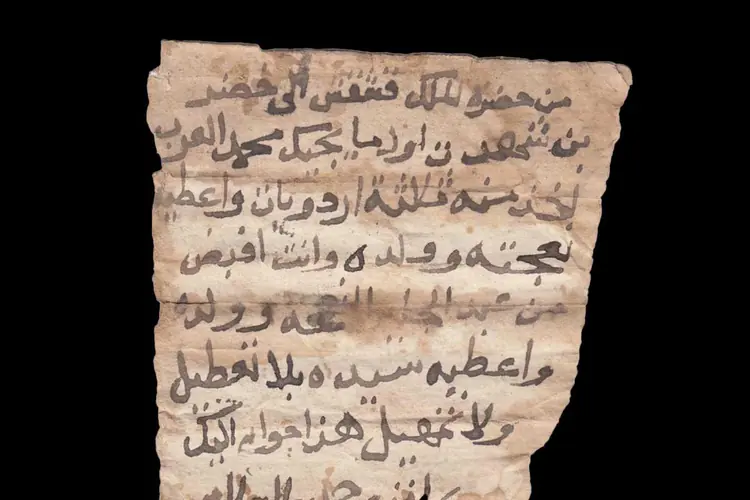 من حضرة الملك قشقش الى خضر
بن اول ما يجيك محمد العرب
منه ثلاثة اردويات واعطيه
نعجته وولده وانت اقبض
من عبد النعجه وولده
واعطيه سيده بلا تعطيل
ولا تمهيل هذا جوابه اليك